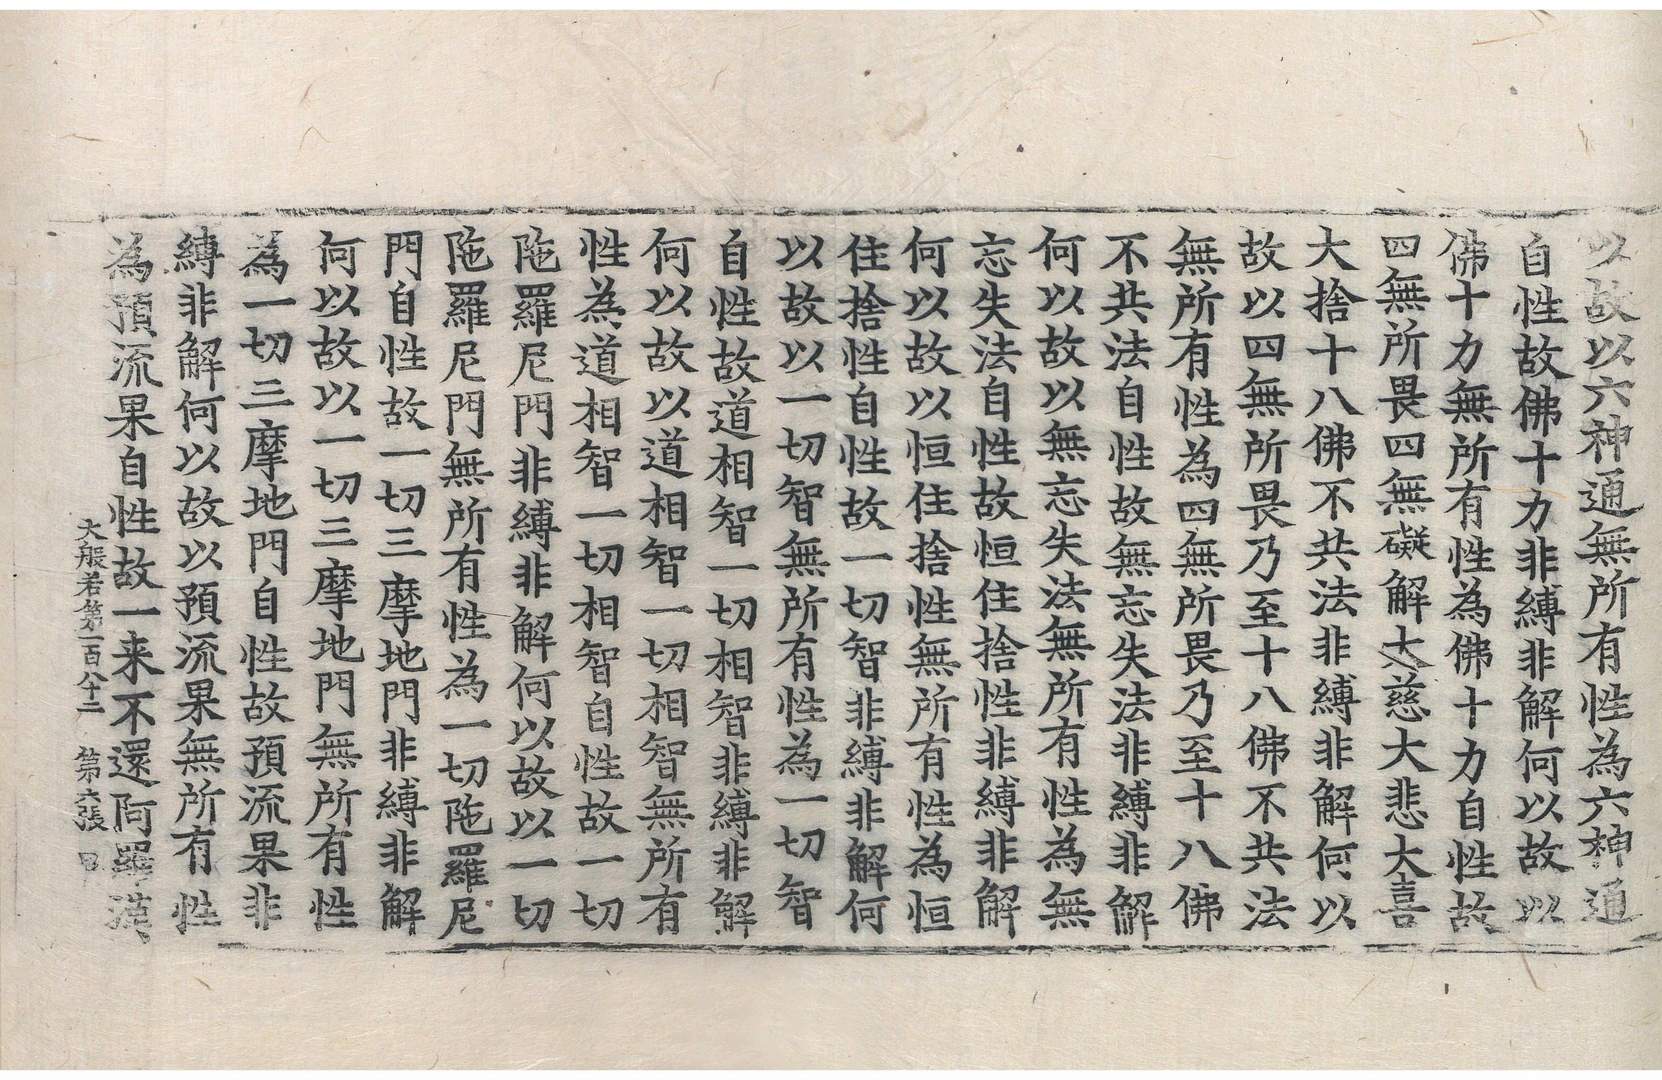 以故以六神通無所有性為六神通
自性故佛十力非縛非解何以故以
佛十力無所有性為佛十力自性故
四無所畏四無礙解大慈大悲大喜
大捨十八佛不共法非縛非解何以
故以四無所畏乃至十八佛不共法
無所有性為四無所畏乃至十八佛
不共法自性故無忘失法非縛非解
何以故以無忘失法無所有性為無
忘失法自性故恒住捨性非縛非解
何以故以恒住捨性無所有性為恒
住捨性自性故一切智非縛非解何
以故以一切智無所有性為一切智
自性故道相智一切相智非縛非解
何以故以道相智一切相智無所有
性為道相智一切相智自性故一切
陁羅尼門非縛非解何以故以一切
陁羅尼門無所有性為一切陁羅尼
門自性故一切三摩地門非縛非解
何以故以一切三摩地門無所有性
為一切三摩地門自性故預流果非
縛非解何以故以預流果無所有性
為預流果自性故一来不還阿羅漢
大般若第一百八十二 第六張